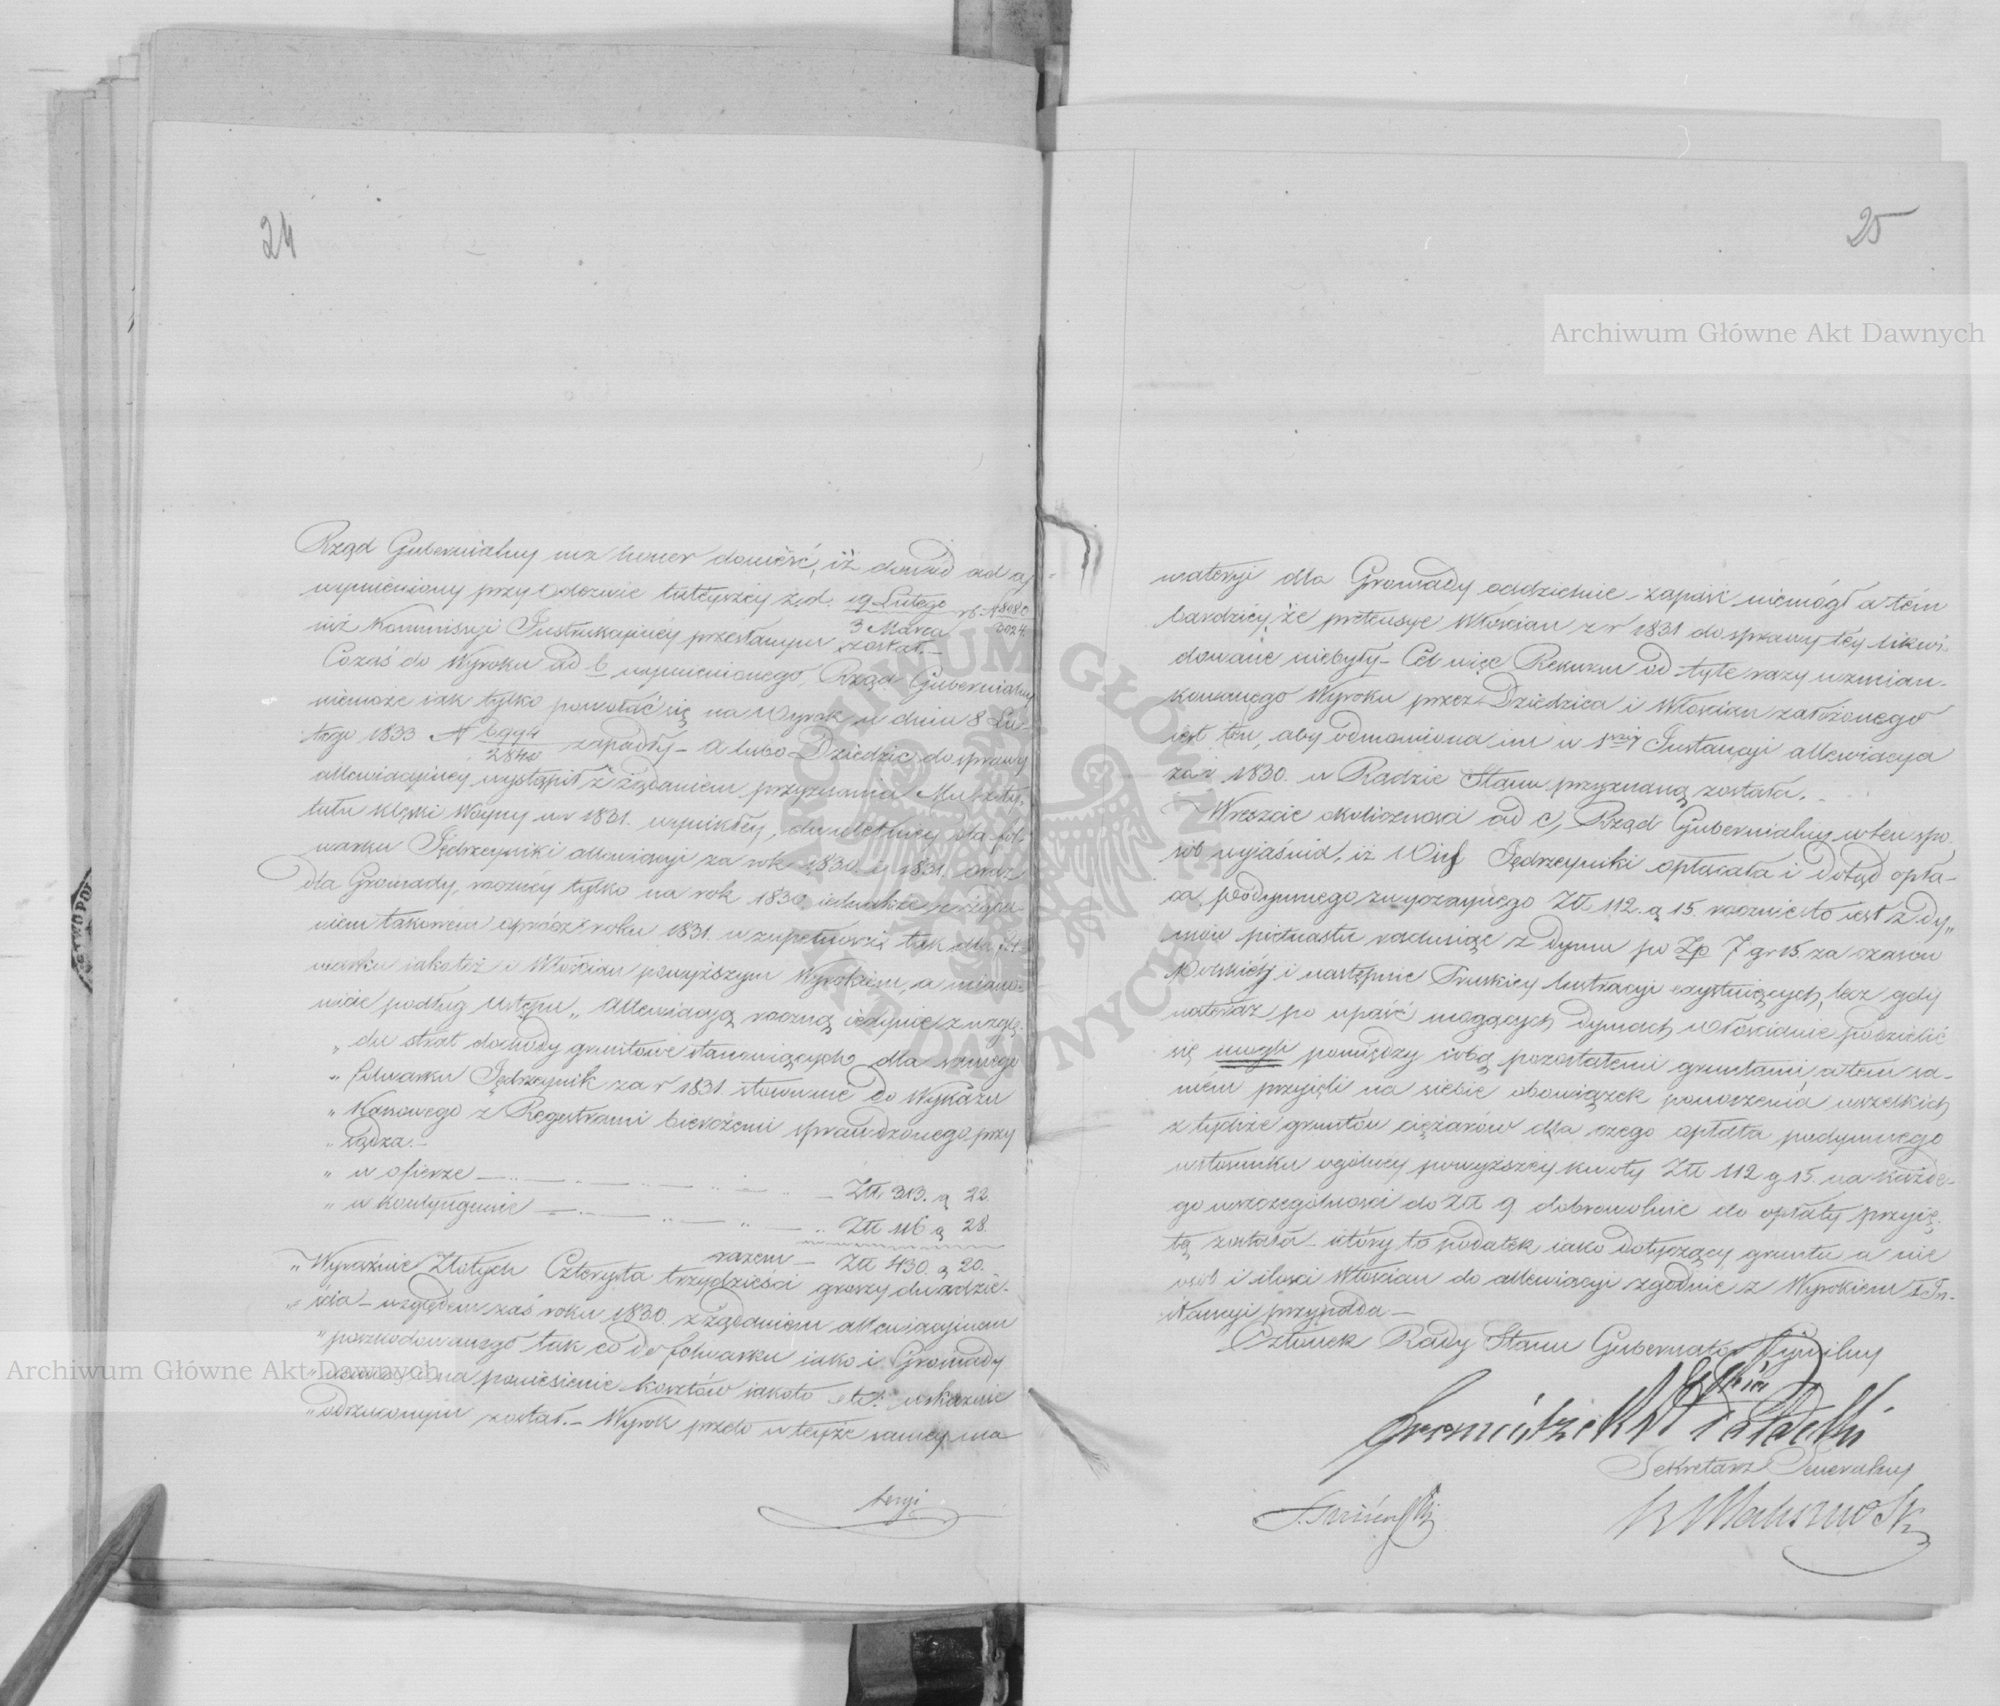 24
Rząd Gubernialny ma honor donieść, iż dowód ad a,
wymieniony przy Odezwie tutejszey z d. 19 Lutego
3 Marca
niż Kommissyi Instrukcyjnéy przesłanym został.-
Cozaś do Wyroku ad b wymienionego, Rząd Gubernialny
niemoże iak tylko powołać się na Wyrok w dniu 8 Lu-
tego 1833 N 6994
2840 zapadły - a lubo Dziedzic do sprawy
allewiacyjney wystąpił z żądaniem przyznania Mu z tytu-
tułu klęski Woyny w r 1831. wynikłey, dla fol-
warku Jędrzeyniki allewiacyi za rok 1830. i 1831, oraz
dla Gromady, roczney tylko na rok 1830
oprócz roku 1831. w zupełności tak dla fol-
warku iakoteż i Włościan powyższym Wyrokiem, a miano-
wicie podług Ustępu „ Allewiacyą roczną iedynie z wzglę-
„ du strat dochody gruntowe stanowiących dla samego
„ folwarku Jędrzeynik za r 1831. stosownie do Wykazu
„ Kassowego z Regestrami bieżącemi sprawdzonego, przy
„ sądza.-
„ w ofierze — Złł. 313. g 22.
„ w kontyngensie — Złł 116 g 28.
razem — Złł 430. g 20.
„ Wyraźnie Złotych Czterysta trzydzieści groszy dwadzie-
„ ścia - względem zaś roku 1830. z żądaniem allewiacyinem
„ poszkodowanego tak co do folwarku iako i Gromady
„ na poniesienie kosztów iakoto
„ odrzuconym został. - Wyrok przeto w teyże samey ma
teryi
25
materyi dla Gromady oddzielnie zapaść niemógł a tém
bardziey, że pretensye Włościan z r 1831 do sprawy tey likwi-
dowane niebyły - Cel więc Rekursu od tyle razy wzmian-
kowanego Wyroku przez Dziedzica i Włościan założonego
iest ten, aby odmówiona im w 1szey Instancyi allewiacya
za r 1830. w Radzie Stanu przyznaną została. -
Wreszcie okoliczności ad c, Rząd Gubernialny w ten spo-
sób wyjaśnia, iż Wieś Jędrzeyniki opłacała i dotąd opła-
ca podymnego zwyczaynego Złł 112. g 15. rocznie to iest z Dy„
mów piętnastu rachuiąc z dymu po Zp 7 gr 15. za czasów
i następnie Pruskiey lustracyi exystuiących, lecz gdy
natenczas po upaść mogących dymach Włościanie podzielić
się mogli pomiędzy sobą pozostałemi gruntami, a tem sa-
mém przyięli na siebie obowiązek ponoszenia wszelkich
z tychże gruntów ciężarów dla czego opłata podymnego
w stosunku ogólney powyższey kwoty Złł 112 g 15. na każde-
go w szczególności do Złł 9 dobrowolnie do opłaty przyię-
tą została - który to podatek iako dotyczący gruntu a nie
osób i ilości Włościan do allewiacyi zgodnie z Wyrokiem 1 In-
stancyi przypada —
Członek Rady Stanu Gubernator Cywilny
Sekretarz Generalny
Archiwum Główne Akt Dawnych
Archiwum Główne Akt Dawnych
ARCHIWUM GŁÓWNE AKT DAWNYCH